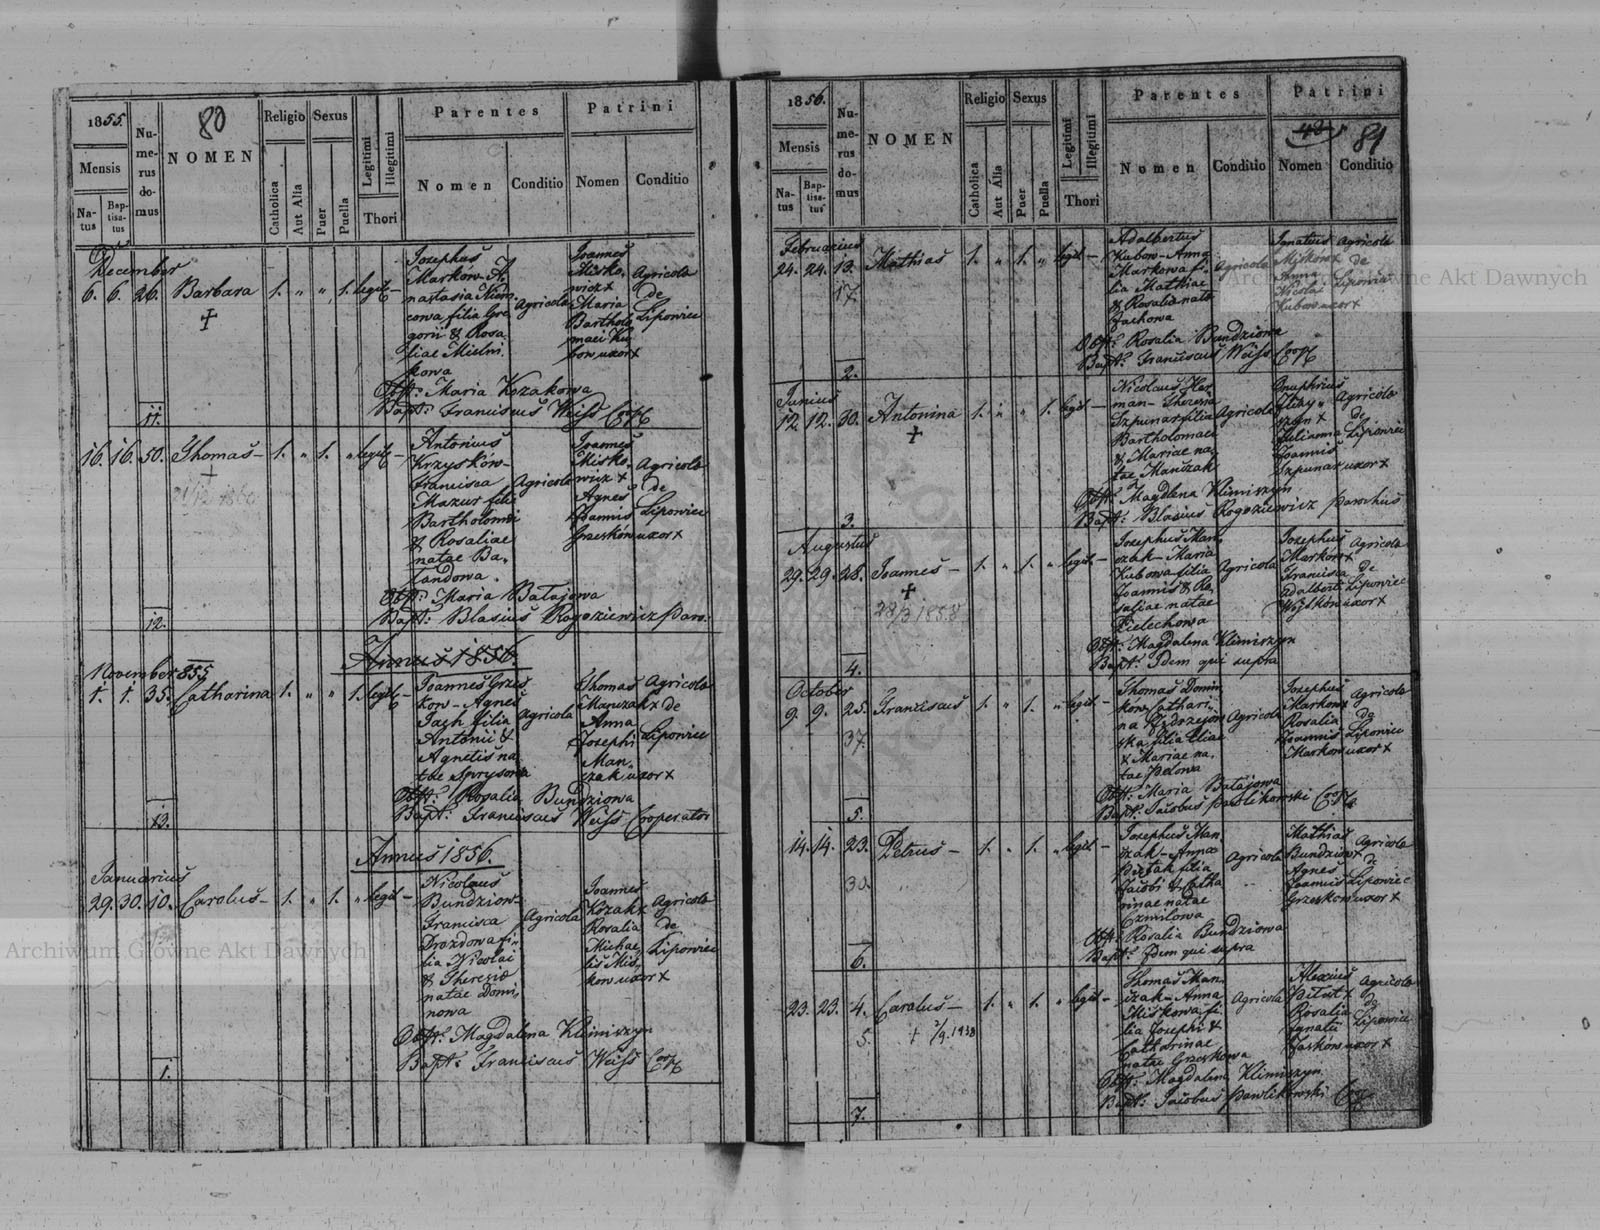 1855.
80
Mensis
Na-
tus
Bap-
tisa-
tus
Nu-
me-
rus
do-
mus
NOMEN
Religio
Catholica
Aut Alia
Sexus
Puer
Puella
Legitimi
Illegitimi
Thori
Parentes
Nomen
Conditio
Patrini
Nomen
Conditio
December
6. 6. 26. Barbara 1. „ „ 1. legit –
+
Josephus
Markow – A
nastasia
filia Gre
gorii & Rosa
liae Mielni
kowa
Agricola
Joannes
Misko
wicz +
Maria
Bartholo
maei Ku
bow uxor +
Agricola
de
Lipowiec
Obst: Maria Kozakowa
Bapt: Franciscus Weiss Coop
11.
16. 16. 50. Thomas – 1. „ 1. „ legit –
+
Antonius
Krzysków –
Francisca
Mazur filia
Bartholomei
& Rosaliae
natae Ba
landowa.
Agricola
Joannes
Misko
wicz +
Agnes
Joannis
Grzesków uxor +
Agricola
de
Lipowiec
Obst: Maria Batajowa
Bapt: Blasius Rogoziewicz Paro.
12.
Annus 1856.
November 855
1. 1. 35. Catharina 1. „ „ 1. legit –
Joannes Grzes
kow – Agnes
Jach filia
Antonii &
Agnetis na
tae Sprysowa
Agricola
Thomas
Manczak +
Anna
Josephi
Man
czak uxor +
Agricola
de
Lipowiec
Obst: Rosalia Bundziowa
Bapt: Franciscus Weiss Cooperator
13.
Annus 1856.
Januarius
29. 30. 10. Carolus – 1. „ 1. „ legit –
Nicolaus
Bundziow –
Francisca
Drozdowa fi
lia Nicolai
& Theresiae
natae Domi
nowa
Agricola
Joannes
Kozak +
Rosalia
Michae
lis Mis
kow uxor +
Agricola
de
Lipowiec
Obst: Magdalena Klimiszyn
Bapt: Franciscus Weiss Coop
1.
1856.
Mensis
Na-
tus
Bap-
tisa-
tus
Nu-
me-
rus
do-
mus
NOMEN
Religio
Catholica
Aut Alia
Sexus
Puer
Puella
Legitimi
Illegitimi
Thori
Parentes
Nomen
Conditio
Patrini
81
Nomen
Conditio
Februarius
24. 24. 13. Mathias 1. „ 1. „ legit –
17.
Adalbertus
Kubow – Anna
Markowa fi
lia Mathiae
& Rosalia nata
Jachowa
Agricola
Ignatius
Miskow +
Anna
Nicolai
Kubow uxor +
Agricola
de
Lipowiec
Obst: Rosalia Bundziowa
Bapt: Franciscus Weiss Coop
2.
Junius
12. 12. 30. Antonina 1. „ „ 1. legit –
+
Nicolaus Har
man – Theresia
Szpunar filia
Bartholomaei
& Mariae na
tae Manczak
Agricola
Onuphrius
szyn +
Julianna
Joannis
Szpunar uxor +
Agricola
de
Lipowiec
Obst: Magdlena Klimiszyn
Bapt: Blasius Rogoziewicz Parochus
3.
Augustus
29. 29. 28. Joannes – 1. „ 1. „ legit –
+
28/3 1858
Josephus Man
czak – Maria
Kubowa filia
Joannis & Ro
saliae natae
Pielechowa
Agricola
Josephus
Markow +
Francisca
Adalberti
Wojtków uxor +
Agricola
de
Lipowiec
Obst: Magdalena Klimiszyn
Bapt: Idem qui supra
4.
October
9. 9. 25. Franciscus 1. „ 1. „ legit –
37.
Thomas Domin
kow Cathari
na
ska filia Eliae
& Mariae na
tae
Agricola
Josephus
Markow +
Rosalia
Joannis
Markow uxor +
Agricola
de
Lipowiec
Obst: Maria Batajowa
Bapt: Jacobus Pawlikowski Coop
5.
14. 14. 23. Petrus – 1. „ 1. „ legit –
30.
Josephus Man
czak – Anna
Pietak filia
Jacobi & Catha
rinae natae
Czmilowa
Agricola
Mathias
Bundziow +
Agnes
Joannis
Grzeskow uxor +
Agricola
de
Lipowiec
Obst: Rosalia Bundziowa
Bapt: Idem qui supra
6.
23. 23. 4. Carolus – 1. „ 1. „ legit –
5.
+ 2/9. 1938
Thomas Man
czak – Anna
Miskowa fi
lia Josephi &
Catharinae
natae Grzeskowa
Agricola
Alexius
Rosalia
Ignatii
Jasków uxor +
Agricola
de
Lipowiec
Obst: Magdalena Klimiszyn
Bapt: Jacobus Pawlikowski Coop
7.
Archiwum Główne Akt Dawnych
Archiwum Główne Akt Dawnych